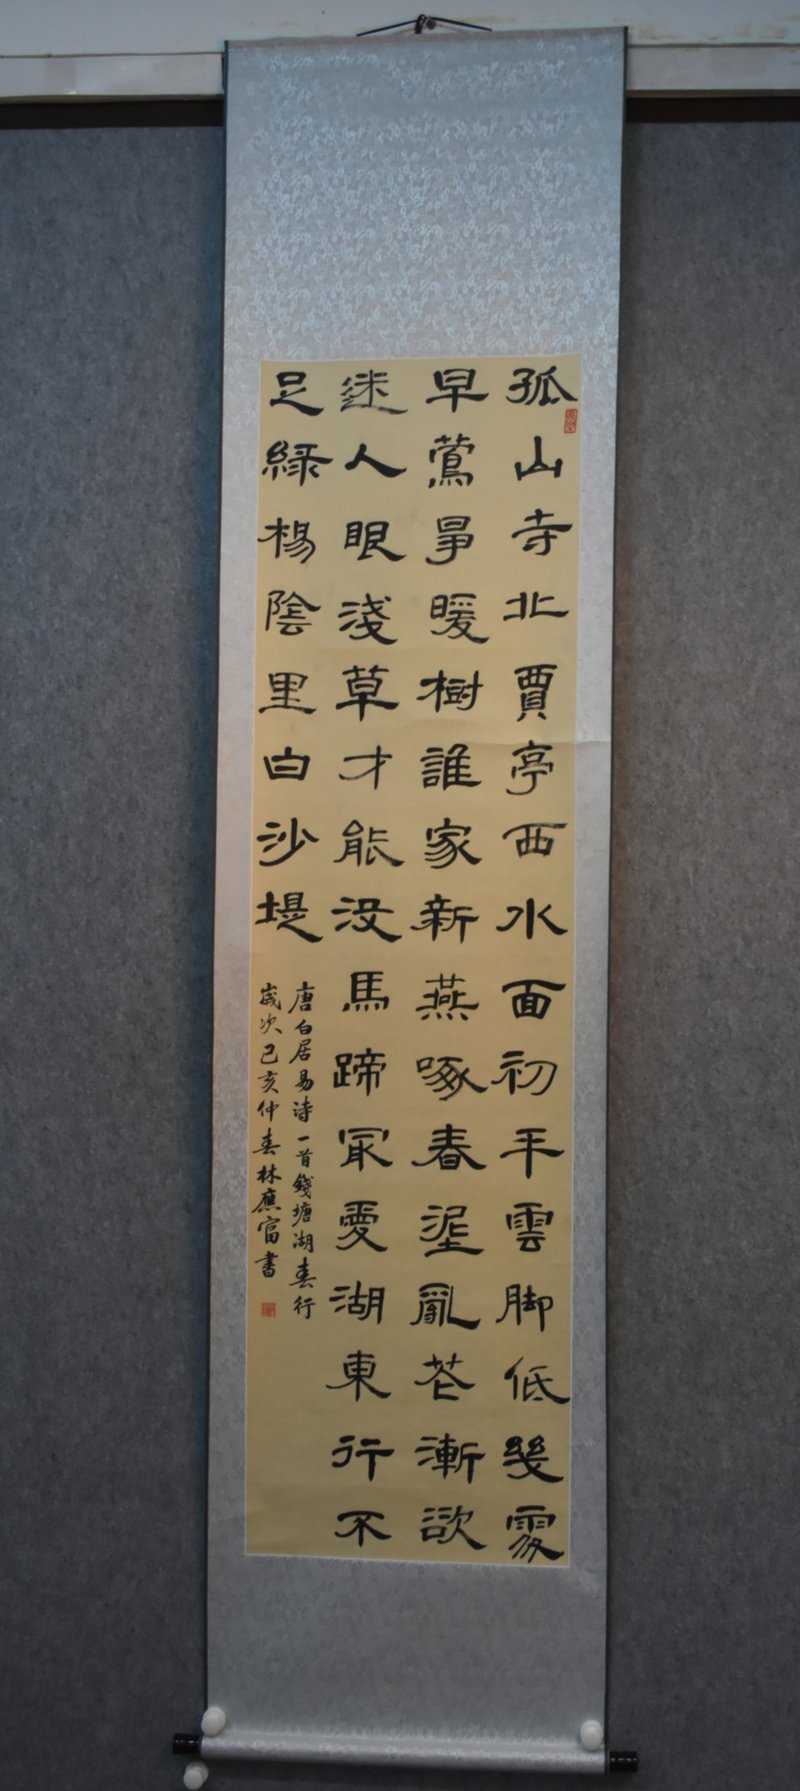 孤山寺北賈亭西水面初平雲脚低幾處
早鶯爭暖樹誰家新燕啄春埿亂花漸欲
迷人眼淺草才能沒馬蹄冣愛湖東行不
足綠楊陰里白沙堤
唐白居易诗一首錢塘湖春行
歲次己亥仲春林應富書